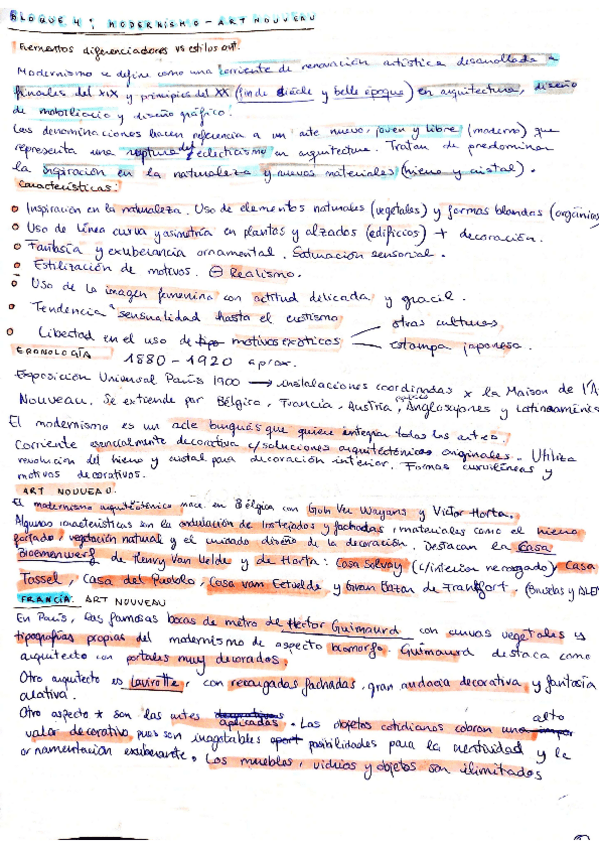 BLOQUE 4: MODERNISMO - ART NOUVEAU
Elementos diferenciadores vs estilos ant.
Modernismo se define como una corriente de renovación artística desarrollada a
finales del XIX y principios del XX (fin de siécle y belle époque) en arquitectura, diseño
de mobiliario y diseño gráfico.
Las denominaciones hacen referencia a un arte nuevo, joven y libre (moderno) que
representa una ruptura del eclecticismo en arquitectura. Tratan de predominar
la inspiración en la naturaleza y nuevos materiales (hierro y cristal).
Características:
o Inspiración en la naturaleza. Uso de elementos naturales (vegetales) y formas blandas (orgánicas
o Uso de línea curva y asimetría en plantas y alzados (edificios) + decoración.
o Fantasía y exuberancia ornamental. Saturación sensorial.
o Estilización de motivos. ⊖ Realismo.
o Uso de la imagen femenina con actitud delicada y gracil.
o Tendencia a sensualidad hasta el erotismo
o Libertad en el uso de motivos exóticos — otras culturas
— estampa japonesa.
CRONOLOGÍA 1880 - 1920 aprox.
Exposición Universal París 1900 → instalaciones coordinadas x la Maison de l'A
Nouveau. Se extiende por Bélgica, Francia, Austria, países Anglosajones y Latinoaméric
El modernismo es un arte burgués que quiere integrar todas las artes.
Corriente esencialmente decorativa c/soluciones arquitectónicas originales. Utiliza
revolución del hierro y cristal para decoración interior. Formas curvilíneas y
motivos decorativos.
ART NOUVEAU.
El modernismo arquitectónico nace en Bélgica con y Victor Horta.
Algunas características son la ondulación de los tejados y fachadas, materiales como el hierro
forjado, vegetación natural y el cuidado diseño de la decoración. Destacan la Casa
Bloemenwerf de Henry Van Velde y de Horta: Casa Solvay (c/interior recargado) Casa
Tassel, Casa del Pueblo, Casa vam Eetvelde y Gran Bazar de Frankfort. (Bruselas y ALE
FRANCIA. ART NOUVEAU
En París, las famosas bocas de metro de Hector Guimaurd con curvas vegetales y
tipografías propias del modernismo de aspecto biomorfo. Guimaurd destaca como
arquitecto con portales muy decorados.
Otro arquitecto es Lavirotte, con recargadas fachadas, gran audacia decorativa y fantasía
creativa.
Otro aspecto * son las artes aplicadas. Los objetos cotidianos cobran un alto
valor decorativo, pues son inagotables posibilidades para la creatividad y la
ornamentación exuberante. Los muebles, vidrios y objetos son ilimitados